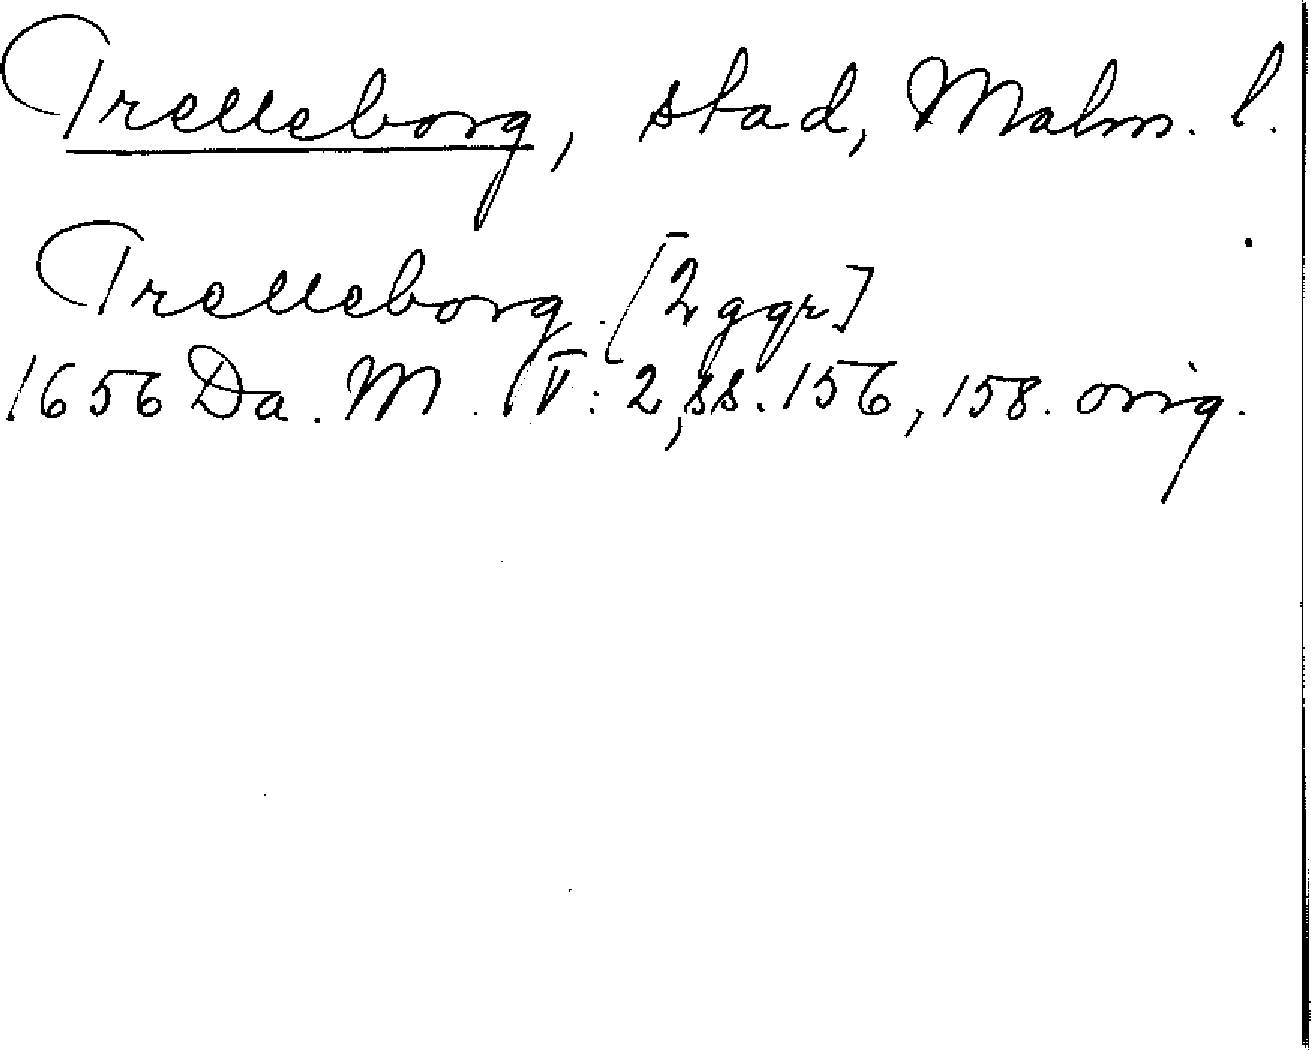 Trelleborg, stad, Malm. l.
Trelleborg. [2 ggr]
1656 Da. M. IV: 2, ss. 156, 158. orig.